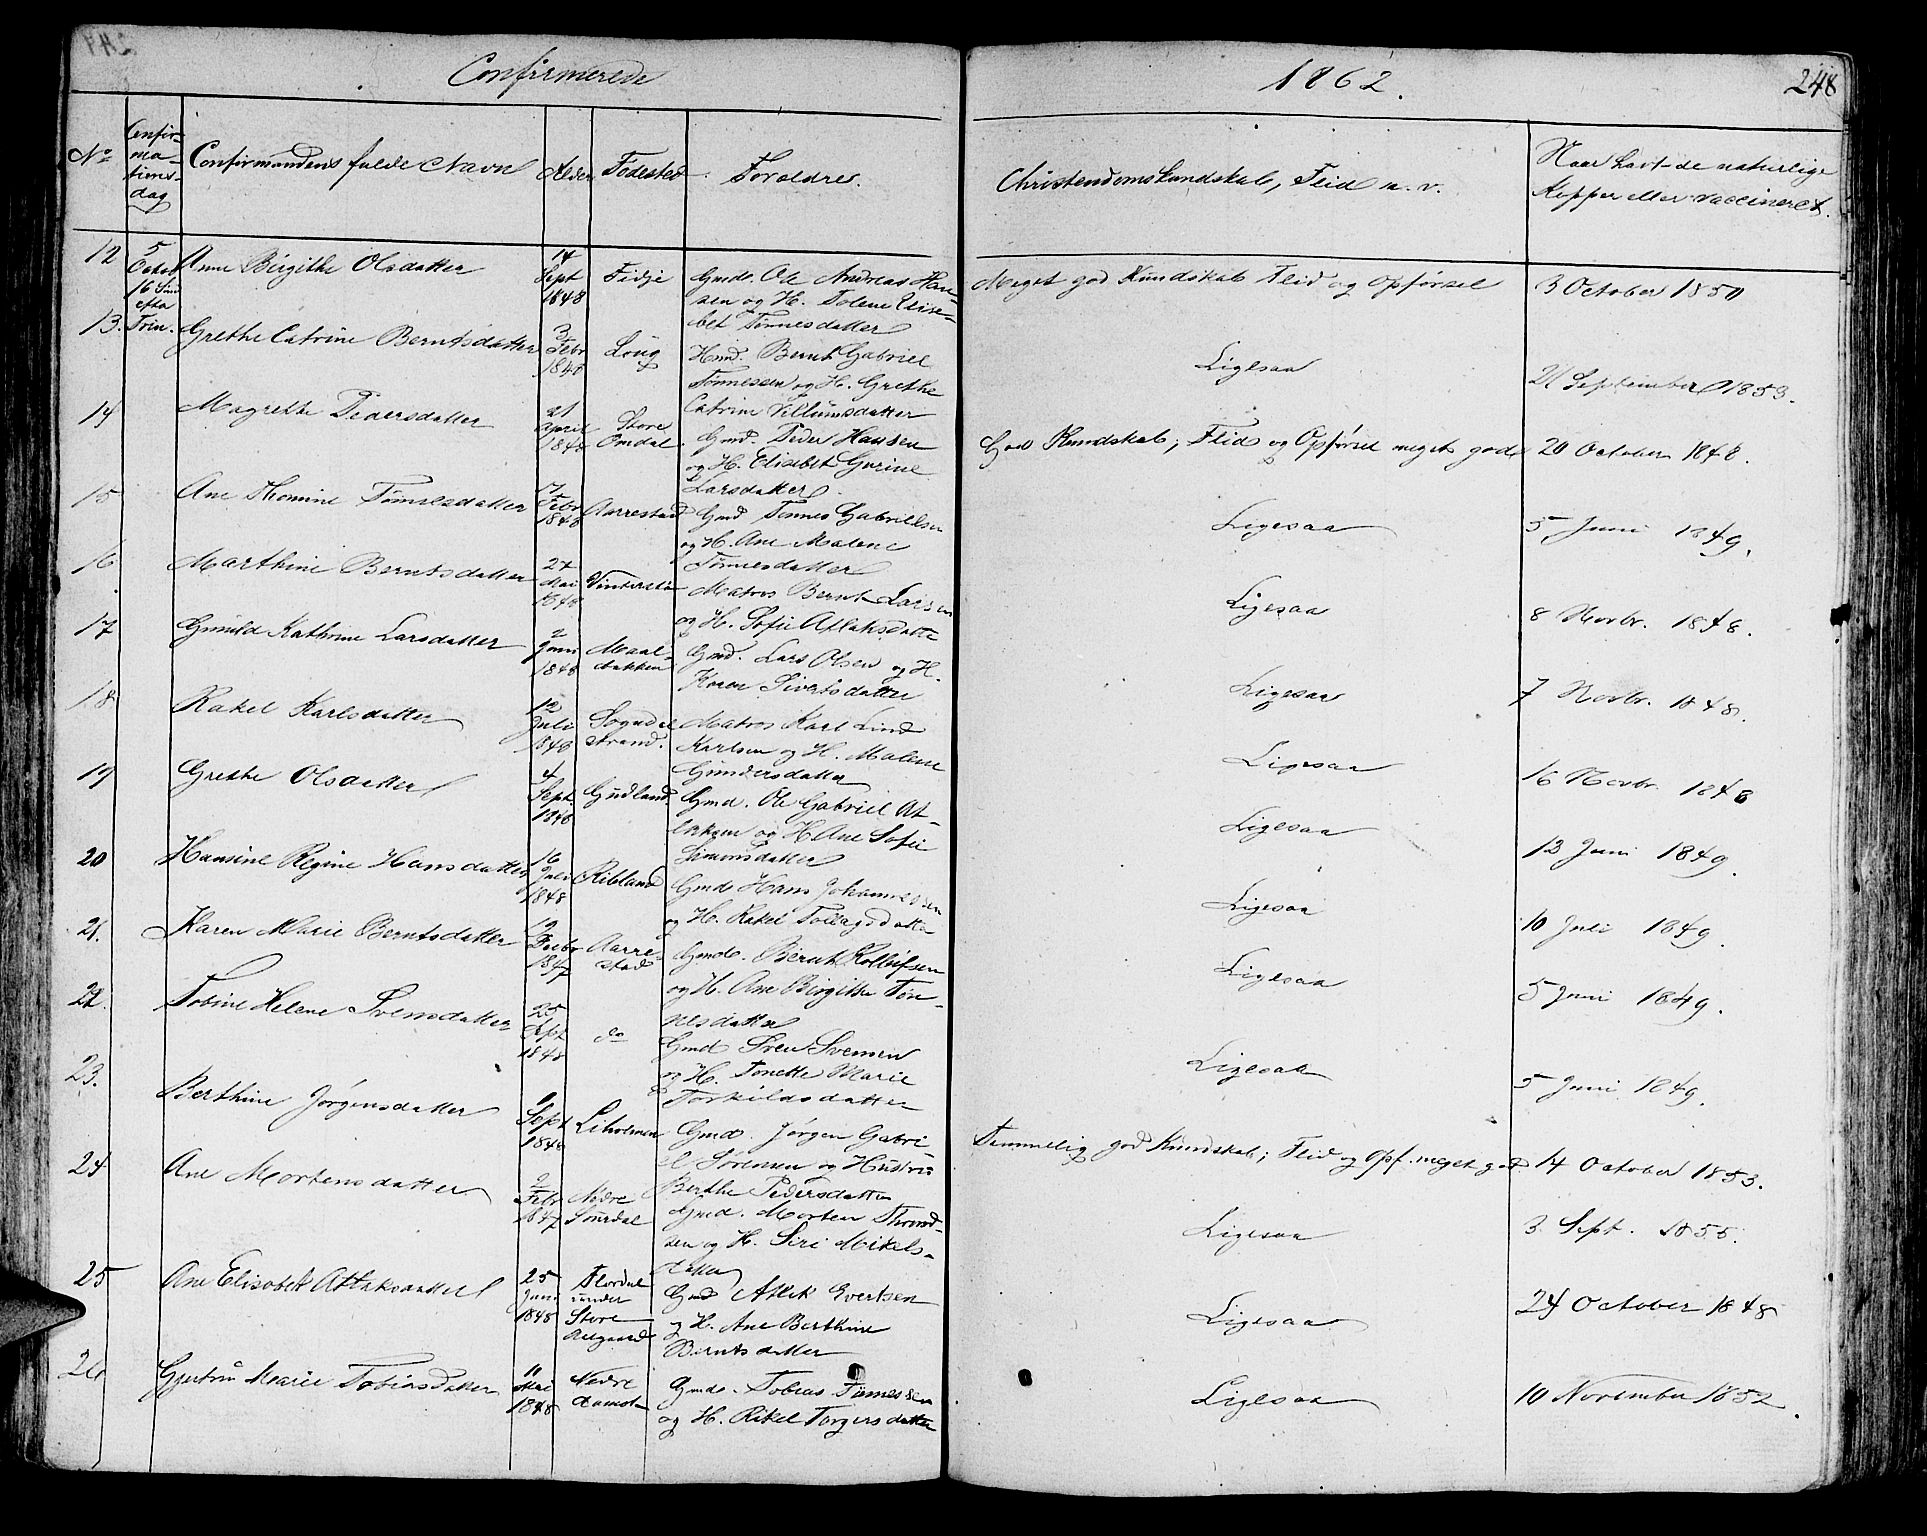 Confirmerede
1862.
248
No
Confir-
ma-
tions-
dag
Confirmandens fulde Navn
Alder
Fødested
Forældre
Christendomskundskab, Flid u. v.
Naar havt de naturlige
Kopper eller vaccineret.
12 5 Octob 16 Sønd efter Trin. Anne Birgithe Olsdatter 14 Sept 1848 Fidje Gmd. Ole Andreas Han-
sen og H. Tolene Elise-
bet Tønnesdatter
Meget god Kundskab Flid og Opførsel 3 October 1850
13. Grethe Catrine Berntsdatter 3 Febr 1848 Loug Hmd. Bernt Gabriel
Tønnessen og H. Grethe
Catrine Villumsdatter
Ligesaa 21 September 1853.
14 Magrethe Pedersdatter 21 April 1848 Store Omdal Gmd. Peder Hansen
og H. Elisabet Gurine
Larsdatter
God Kundskab, Flid og Opførsel meget god 20 October 1848.
15 Ane Thomine Tønnesdatter 7 Febr 1848 Aarrestad Gmd Tønnes Gabrielsen
og H. Ane Malene
Tønnesdatter
Ligesaa 5 Juni 1849.
16 Marthine Berntsdatter 27 Mai 1848 Matros Bernt Larsen
og H. Sofie Atlaksdatter
Ligesaa 8 Novbr. 1848.
17 Gunild Kathrine Larsdatter 2 Juni 1848 Maal-
bakken Gmd. Lars Olsen og H.
Karen Sivertsdatter
Ligesaa 7 Novbr. 1848.
18 Rakel Karlsdatter 12 Juli 1848 Sogndal
strand. Matros Karl Lind
Karlsen og H. Malene
Gundersdatter
Ligesaa 16 Novbr. 1848
19 Grethe Olsdatter 4 Sept 1848 Gudland Gmd. Ole Gabriel At-
laksen og H Ane Sofie
Simonsdatter
Ligesaa 13 Juni 1849.
20 Hansine Regine Hansdatter 16 Juli 1848 Ribland Gmd Hans Johannesen
og H. Rakel Tollagsdatter
Ligesaa 10 Juli 1849.
21. Karen Marie Berntsdatter 19 Febr 1847 Aarre-
stad Gmd. Bernt Rolleifsen
og H. Ane Birgitte Tøn-
nesdatter
Ligesaa 5 Juni 1849.
22. Tobine Helene Svensdatter 25 Sept 1848 do Gmd Sven Svensen
og H. Tonette Marie
Torkildsdatter
Ligesaa 5 Juni 1849.
23. Berthine Jørgensdatter 9 Sept 1848 Liholmen Gmd. Jørgen Gabri-
el Sørensen og Hustru
Berthe Pedersdatter
Temmelig god Kundskab; Flid og Opf. meget god 14 October 1853.
24 Ane Mortensdatter 2 Febr 1847 Nedre
Suurdal Gmd. Morten Thord-
sen og H. Siri Mikels-
datter
Ligesaa 3 Sept. 1855.
25 Ane Elisabet Atlaksdatter 25 Juni 1848 Flordal
under
Store
Aregaard Gmd Atlak Evertsen
og H. Ane Berthine
Berntsdatter
Ligesaa 24 October 1848
26 Gjertrú Marie Tobiasdatter 11 Mai 1848 Nedre Gmd. Tobias Tønnesen
og H. Rikel Torgersdatter
Ligesaa 10 November 1852.